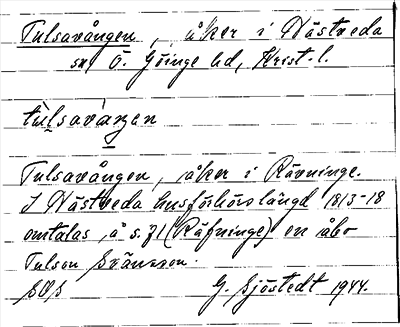 Tulsavången, åker i Nästveda
sn Ö. Göinge hd, Krist. l.
tùlsavàŋen
Tulsavången, åker i Rävninge.
I Nästveda husförhörslängd 1813-18
omtalas å s. 71 (Räfninge) en åbo
Tulson Svänsson.
G. Sjöstedt 1944.